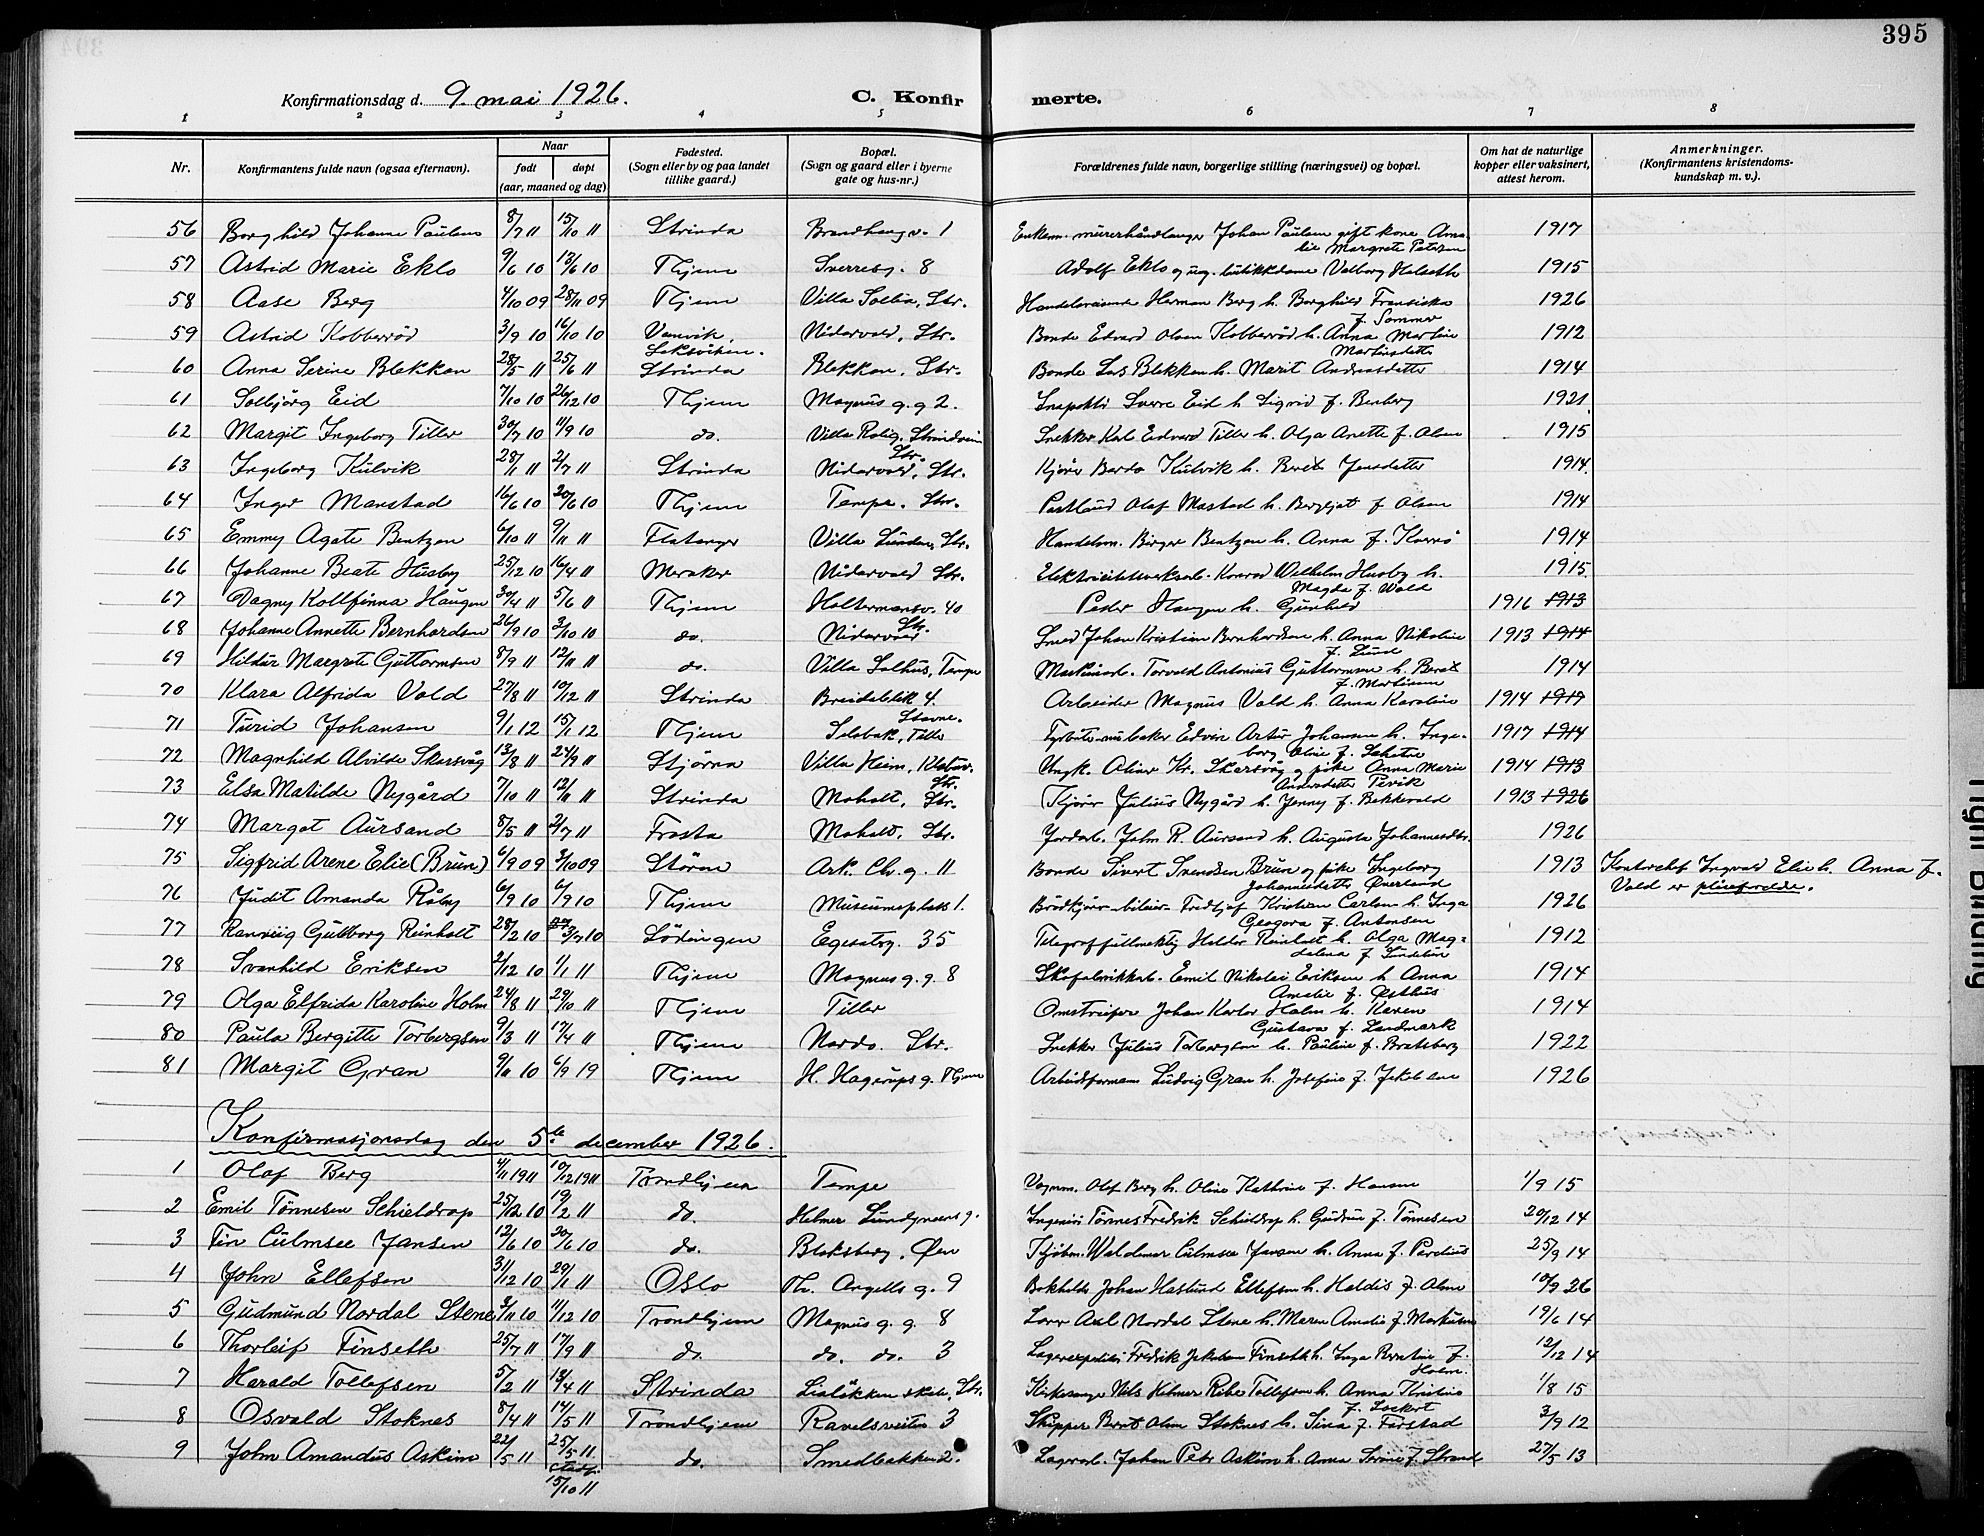 395
Konfirmationsdag d. 9. mai 1926. C. Konfirmerte.
1 2 3 4 5 6 7 8
Nr. Konfirmantens fulde navn (ogsaa efternavn). Naar født døpt (aar, maaned og dag) Fødested. (Sogn eller by og paa landet tillike gaard.) Bopæl. (Sogn og gaard eller i byerne gate og hus-nr.) Forældrenes fulde navn, borgerlige stilling (næringsvei) og bopæl. Om hat de naturlige kopper eller vaksinert, attest herom. Anmerkninger. (Konfirmantens kristendoms-kundskap m. v.).
56 Borghild Johanne Paulsen 8/7 11 15/10 11 Strinda 1 Johan Paulsen gift kone Ama-lie Margrete Petersen 1917
57 Astrid Marie Eklo 9/6 10 Thjem Sverresg. 8 Adolf Eklo og Valborg 1915
58 Aase Berg 4/10 09 28/11 09 Thjem Villa Solbia, Str. Handelsreisende Herman Berg h. Borghild Fransiska f. Sommer 1926
59 Astrid Kobberrød 3/9 10 16/10 10 Vanvik, Leksviken. Nidarvold, Str. Bonde Edvard Olsen Kobberrød h. Anna Martine Martinsdatter 1912
60 Anna Serine Blekkan 28/5 11 25/6 11 Strinda Blekkan, Str. Bonde Lars Blekkan h. Marit Andreasdatter 1914
61 Solbjørg Eid 7/10 10 26/12 10 Thjem Magnus g. g 2. Inspektør Sverre Eid h. Sigrid f. Benberg 1921
62 Margit Ingeborg Tiller 30/7 10 11/9 10 do. Villa Rolig, Strindveien Str. Snekker Karl Edvard Tiller h. Olga Anette f. Olsen 1915
63 Ingeborg Kulvik 28/1 11 2/7 11 Strinda Nidarvold, Str. Kjører Bardo Kulvik h. Beret Jensdatter 1914
64 Inger Manstad 16/6 10 20/6 10 Thjem Tempe. Str. Olaf Mastad h. Bergljot f. Olsen 1914
65 Emmy Agate Bentzen 6/10 11 9/11 11 Flatanger Villa Lunden, Str. Handelsm. Birger Bentzen h. Anna f. 1914
66 Johanne Beate Husby 25/12 10 16/4 11 Meraker Nidarvold Str. Konrad Wilhelm Husby h. Magda f. Wold 1915
67 Dagny Kollfinna Haugen 30/4 11 5/6 11 Thjem Holtermansv. 40 Peder Haugen h. Gunhild 1916 1913
68 Johanne Annette Bernhardsen 26/9 10 3/10 10 do. Nidarvold Str. Smed Johan Kristian Bernhardsen h. Anna Nikoline f. Lund 1913 1914
69 Hildur Margrete Guttormsen 8/9 11 12/11 11 do. Villa Solhus, Tempe Maskinarb. Torvald Antonius Guttormsen h. Beret f. Martinsen 1914
70 Klara Alfrida Vold 27/8 11 10/12 11 Strinda Breidablik 4. Arbeider Magnus Vold h. Anna Karoline 1914 1917
71 Turid Johansen 9/1 12 15/1 12 Thjem Stavne. Selsbak, Tiller Edvin Artur Johansen h. Inge-borg Oline f. 1917 1914
72 Magnhild Alvilde Skarsvåg 13/8 11 24/9 11 Stjørna Villa Heim, Str. Ungk. Oliver Kr. Skarsvåg og pike Anna Marie Andersdatter Pervik 1914 1913
73 Elsa Matilde Nygård 7/10 11 12/11 11 Strinda Moholt, Str. Kjører Julius Nygård h. Jenny f. Bekkvold 1913 1926
74 Margot Aursand 8/5 11 2/7 11 Frosta Moholt, Str. Jordarb. John R. Aursand h. Augusta Johannesdtr. 1926
75 Sigfrid Arene Elie (Brun) 6/9 09 3/10 09 Støren Ark. Chr. g. 11 Bonde Sivert Svendsen Brun og pike Ingeborg Johannesdatter Øverland 1913 Kontorchef Ingvald Elie h. Anna f. Vold er pleieforeldre.
76 Judit Amanda Råby 6/9 10 6/9 10 Thjem Museumsplass 1. Brødkjører Fredtjof Kristian Carlsen h. Inga Georgora f. Antonsen 1926
77 Ranveig Gullborg Reinholt 28/2 10 3/7 10 Lødingen Egsetrg. 35 Telegraffullmektig Haldor Reinholt h. Olga Mag-dalena f. Lindstøm 1912
78 Svanhild Eriksen 2/12 10 1/1 11 Thjem Magnus g. g. 8 Skofabrikkarb. Emil Nikolai Eriksen h. Anna Amalie f. Østhus 1914
79 Olga Elfrida Karoline Holm 24/8 11 29/10 11 Thjem Tiller Omstreifer Johan Karlov Holm h. Karen Gustava f. Landmark 1914
80 Paula Bergitte Torbergsen 9/3 11 17/4 11 Thjem Nardo. Str. Snekker Julius Torbergsen h. Pauline f. Bratsberg 1922
81 Margit Gran 9/11 10 6/9 19 Thjem H. Hagerups g. Thjem Arbeidsformann Ludvig Gran h. Josefine f. Jakobsen 1926
Konfirmasjonsdag den 5te december 1926.
1 Olaf Berg 4/11 1911 10/12 1911 Trondhjem Tempe Vognm. Olaf Berg h. Oline Kathrine f. Hansen 1/9 15
2 Emil Tønnesen Schieldrop 25/12 10 19/2 11 do. Helmer Lundgreens g. Ingeniør Tønnes Fredrik Schieldrop h. Gudrun f. Tønnesen 20/12 14
3 Finn Culmsee Jansen 12/6 10 20/6 10 do. Bloksberg, Øen Kjøbm. Waldemar Culmsee Jansen h. Anna f. Pardius 25/9 14
4 John Ellefsen 31/12 10 29/1 11 Oslo Th. Angells g. 9 Bokholder Johan Haslund Ellefsen h. Haldis f. Olsen 10/9 26
5 Gudmund Nordal Stene 3/11 10 11/12 10 Trondhjem Magnus g. g. 8 Axel Nordal Stene h. Maren Amalie f. Markussen 19/6 14
6 Thorleif Finseth 25/7 11 17/9 11 do. do. do. 3 Lagerexpeditør Fredrik Jakobsen Finseth h. Inga Bentine f. Holm. 12/12 14
7 Harald Tollefsen 5/2 11 13/4 11 Strinda Lialøkken skole, Str. Kirkesanger Nils Helmer Ribe Tollefsen h. Anna Kristine f. Lockert 1/8 15
8 Osvald Stoknes 8/4 11 14/5 11 Trondhjem Ravelsveiten 3 Skipper Bernt Olsen Stoknes h. Sina f. Farstad 3/9 12
9 John Amandus Askim 22/5 11 25/5 11 stadf. 15/10 11 do. Smedbakken 2. Lagerarb. Johan Peter Askim h. Anna Serine f. Strand 27/5 13